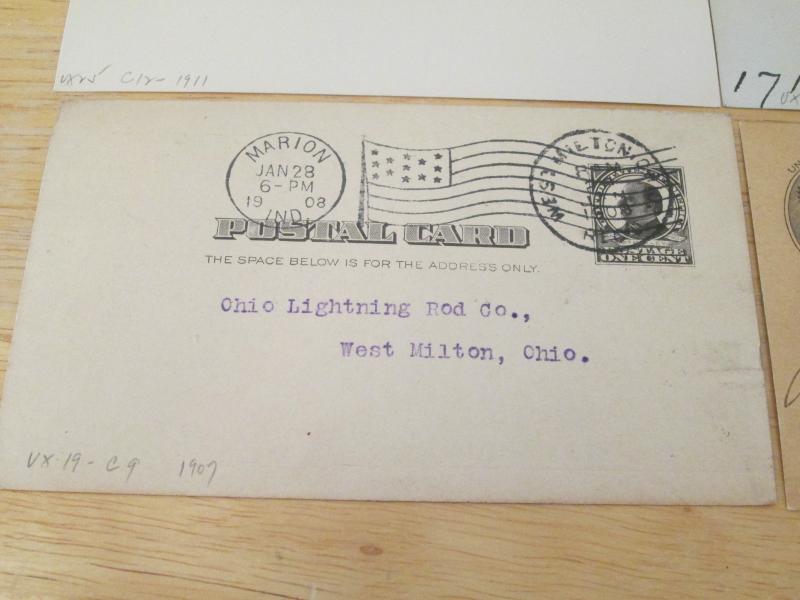 C12- 1911
17
MARION
JAN 28
6-PM
19 08
IND.
WEST MILTON
POSTAL CARD
POSTAGE
ONE CENT
THE SPACE BELOW IS FOR THE ADDRESS ONLY.
Ohio Lightning Rod Co.,
West Milton, Ohio.
UX-19 - C9 1907